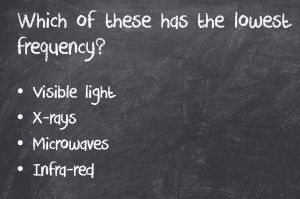 Which of these has the lowest
frequency?
• Visible light
• X-rays
• Microwaves
• Infra-red